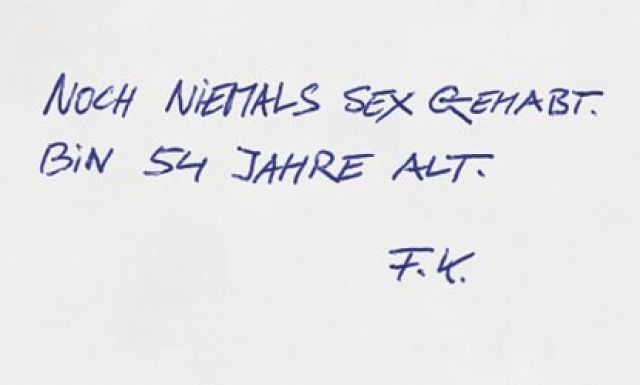 NOCH NiEMALS SEX GEHABT.
BiN 54 JAHRE ALT.
F.K.